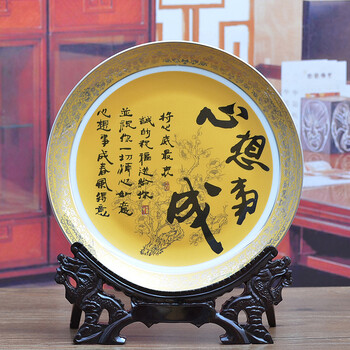 心想事成
将心底最真
诚的祝福送给你
并祝你一切称心如意
心想事成春风得意